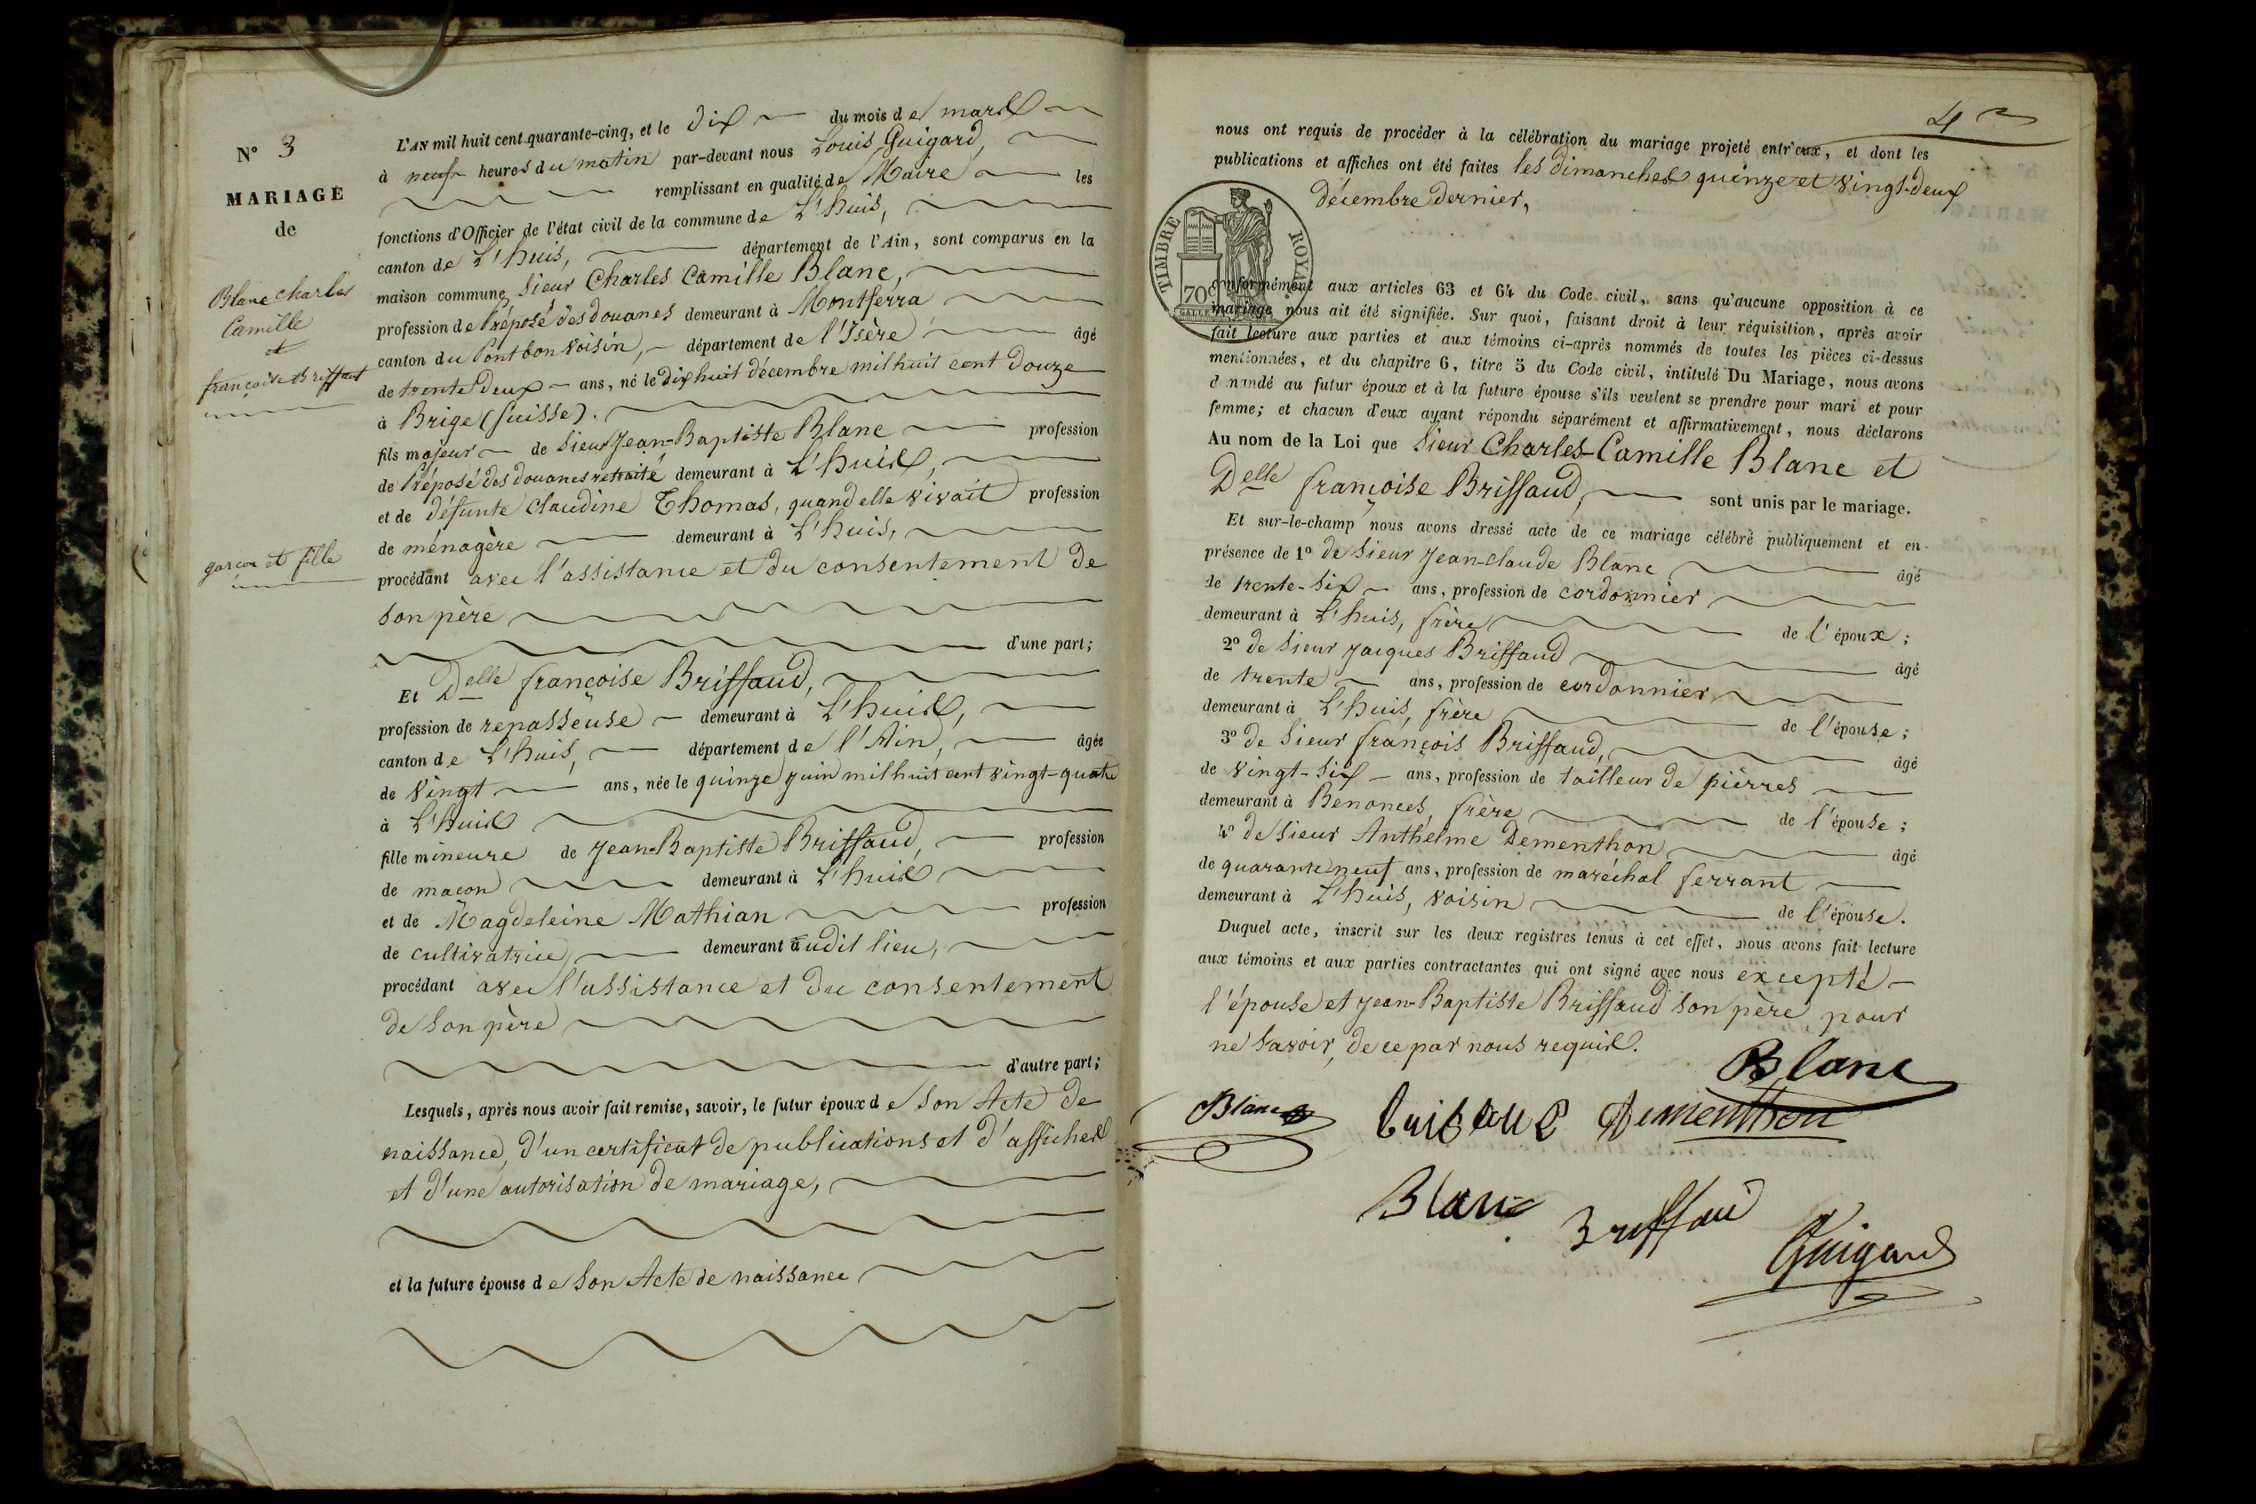 N° 3
MARIAGE
de
Blanc Charles
Camille
et
françoise Briffaud
garçon et fille
L'AN mil huit cent quarante-cinq, et le dix du mois de mars
à neuf heures du matin par-devant nous Louis Guigard,
remplissant en qualité de Maire les
fonctions d'Officier de l'état civil de la commune de L'huis,
canton de L'huis, département de l'Ain, sont comparus en la
maison commune Sieur Charles Camille Blanc,
profession de Préposé des douanes demeurant à Montferra
canton du Pont bon voisin, département de l'Isère âgé
de trente deux ans, né le dix huit décembre mil huit cent douze
à Brige (Suisse).
fils majeur de Sieur Jean-Baptiste Blanc profession
de Préposé des douanes retraité demeurant à L'huis,
et de défunte Claudine Thomas, quand elle vivait profession
de ménagère demeurant à L'huis,
procédant avec l'assistance et du consentement de
son père
d'une part;
Et Delle françoise Briffaud,
profession de repasseuse demeurant à L'huis,
canton de L'huis, département de l'Ain, âgée
de vingt ans, née le quinze juin mil huit cent vingt-quatre
à L'huis
fille mineure de Jean-Baptiste Briffaud, profession
de maçon demeurant à L'huis
et de Magdeleine Mathian profession
de cultivatrice, demeurant audit lieu,
procédant avec l'assistance et du consentement
de son père
d'autre part;
Lesquels, après nous avoir fait remise, savoir, le futur époux de son Acte de
naissance, d'un certificat de publications et d'affiches
et d'une autorisation de mariage,
et la future épouse de son Acte de naissance
4
nous ont requis de procéder à la célébration du mariage projeté entr'eux, et dont les
publications et affiches ont été faites les dimanches quinze et vingt-deux
décembre dernier,
TIMBRE ROYAL
70c
conformément aux articles 63 et 64 du Code civil, sans qu'aucune opposition à ce
mariage nous ait été signifiée. Sur quoi, faisant droit à leur réquisition, après avoir
fait lecture aux parties et aux témoins ci-après nommés de toutes les pièces ci-dessus
mentionnées, et du chapitre 6, titre 5 du Code civil, intitulé Du Mariage, nous avons
demandé au futur époux et à la future épouse s'ils veulent se prendre pour mari et pour
femme; et chacun d'eux ayant répondu séparément et affirmativement, nous déclarons
Au nom de la Loi que Sieur Charles-Camille Blanc et
Delle françoise Briffaud, sont unis par le mariage.
Et sur-le-champ nous avons dressé acte de ce mariage célébré publiquement et en
présence de 1° de Sieur Jean-Claude Blanc âgé
de trente-six ans, profession de cordonnier
demeurant à L'huis, frère de l'époux;
2° de Sieur Jacques Briffaud âgé
de trente ans, profession de cordonnier
demeurant à L'huis, frère de l'épouse;
3° de Sieur françois Briffaud, âgé
de vingt-six ans, profession de tailleur de pierres
demeurant à Benonces, frère de l'épouse;
4° de Sieur Anthelme Dementhon âgé
de quarante neuf ans, profession de maréchal ferrant
demeurant à L'huis, voisin de l'épouse.
Duquel acte, inscrit sur les deux registres tenus à cet effet, nous avons fait lecture
aux témoins et aux parties contractantes qui ont signé avec nous excepté
l'épouse et Jean-Baptiste Briffaud son père, pour
ne savoir, de ce par nous requis.
Blanc
Blanc
Dementhon
Blanc
Briffau
Guigard